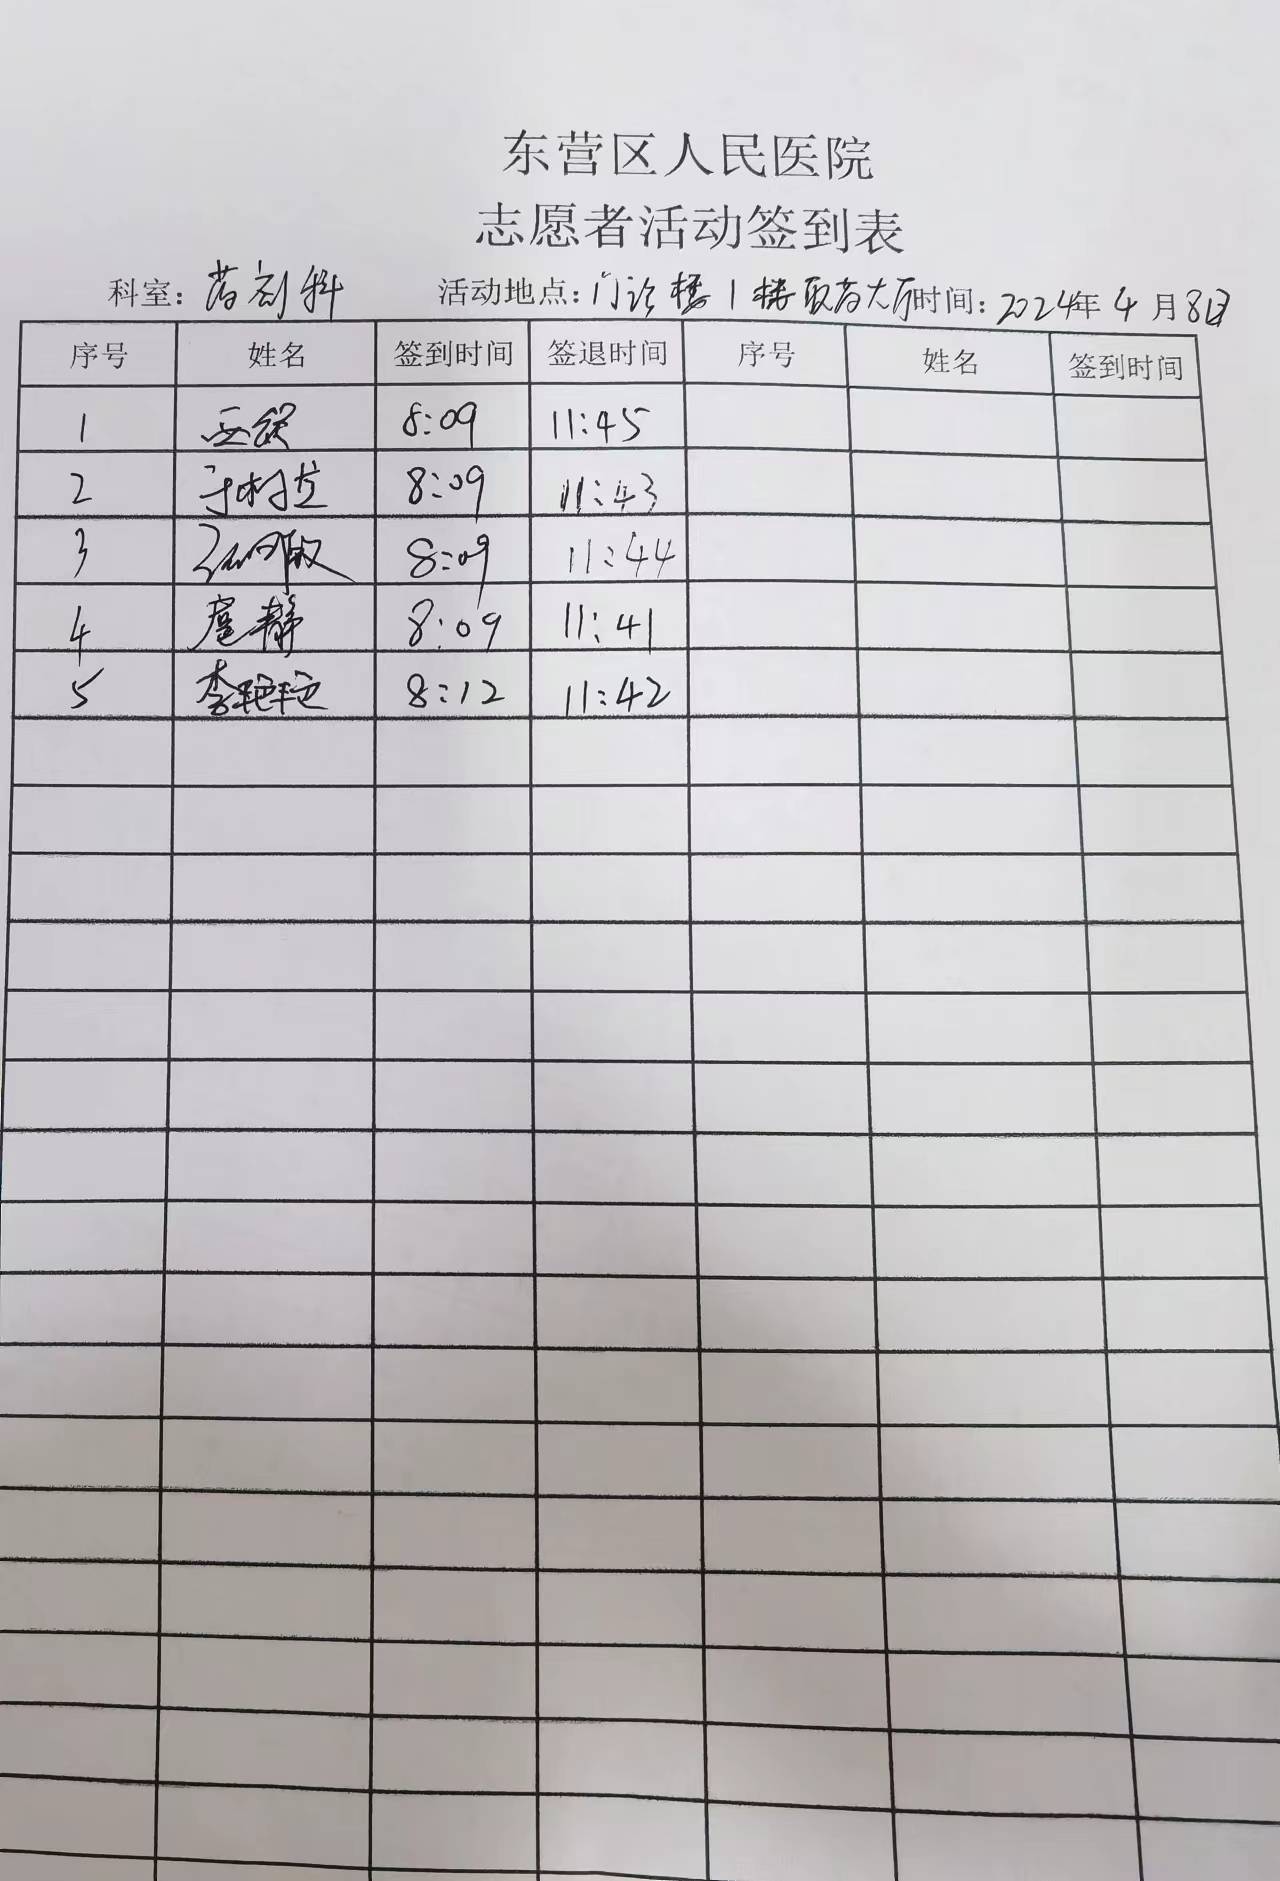 东营区人民医院
志愿者活动签到表
科室：药剂科 活动地点：门诊楼1楼取药大厅 时间：2024年4月8日
序号 姓名 签到时间 签退时间 序号 姓名 签到时间
1 8:09 11:45
2 8:09 11:43
3 8:09 11:44
4 扈静 8:09 11:41
5 李艳艳 8:12 11:42